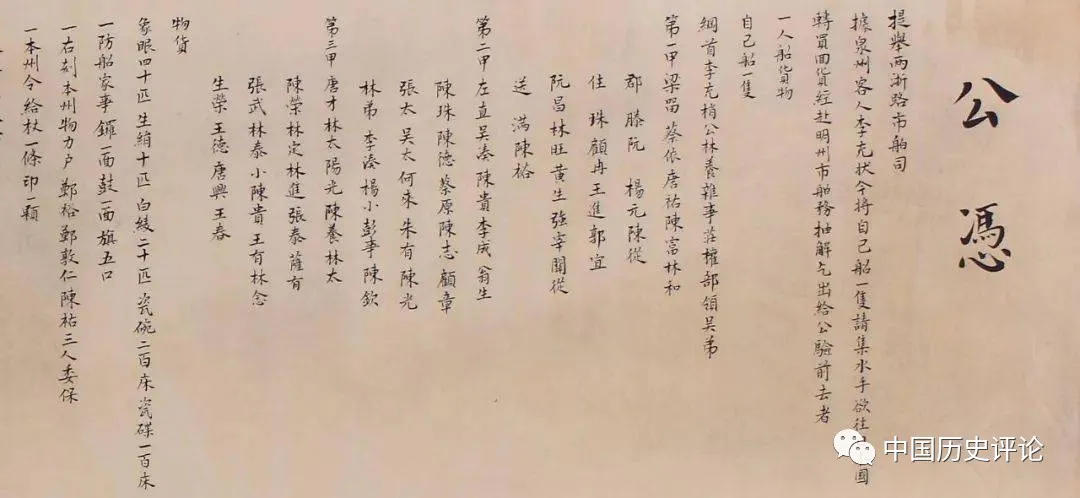 公 憑
提舉兩浙路市舶司
據泉州客人李充狀今將自己船一隻請集水手欲往 國
轉買回貨經赴明州市舶務抽解乞出給公驗前去者
一人船貨物
自己船一隻
綱首李充梢公林養雜事莊權部領吳弟
第一甲梁留 蔡依唐祐陳富林和
郡 滕阮 楊元陳從
住 珠顧冉王進郭宜
阮昌林旺黃生強宰關從
送 滿陳裕
第二甲左直吳湊陳貴李成翁生
陳珠陳德蔡原陳志顧章
張太吳太何來朱有陳光
林弟 李湊楊小彭事陳欽
第三甲唐才林太陽光陳養林太
陳榮林定林進張泰薩有
張武林泰小陳貴王有林念
生榮王德唐興王春
物貨
象眼四十匹生絹十匹白綾二十匹瓷碗二百床瓷碟一百床
一防船家事鑼一面鼓一面旗五口
一右刻本州物力户 鄭裕鄭敦仁陳祐三人委保
一本州今給杖一條印一顆
中国历史评论